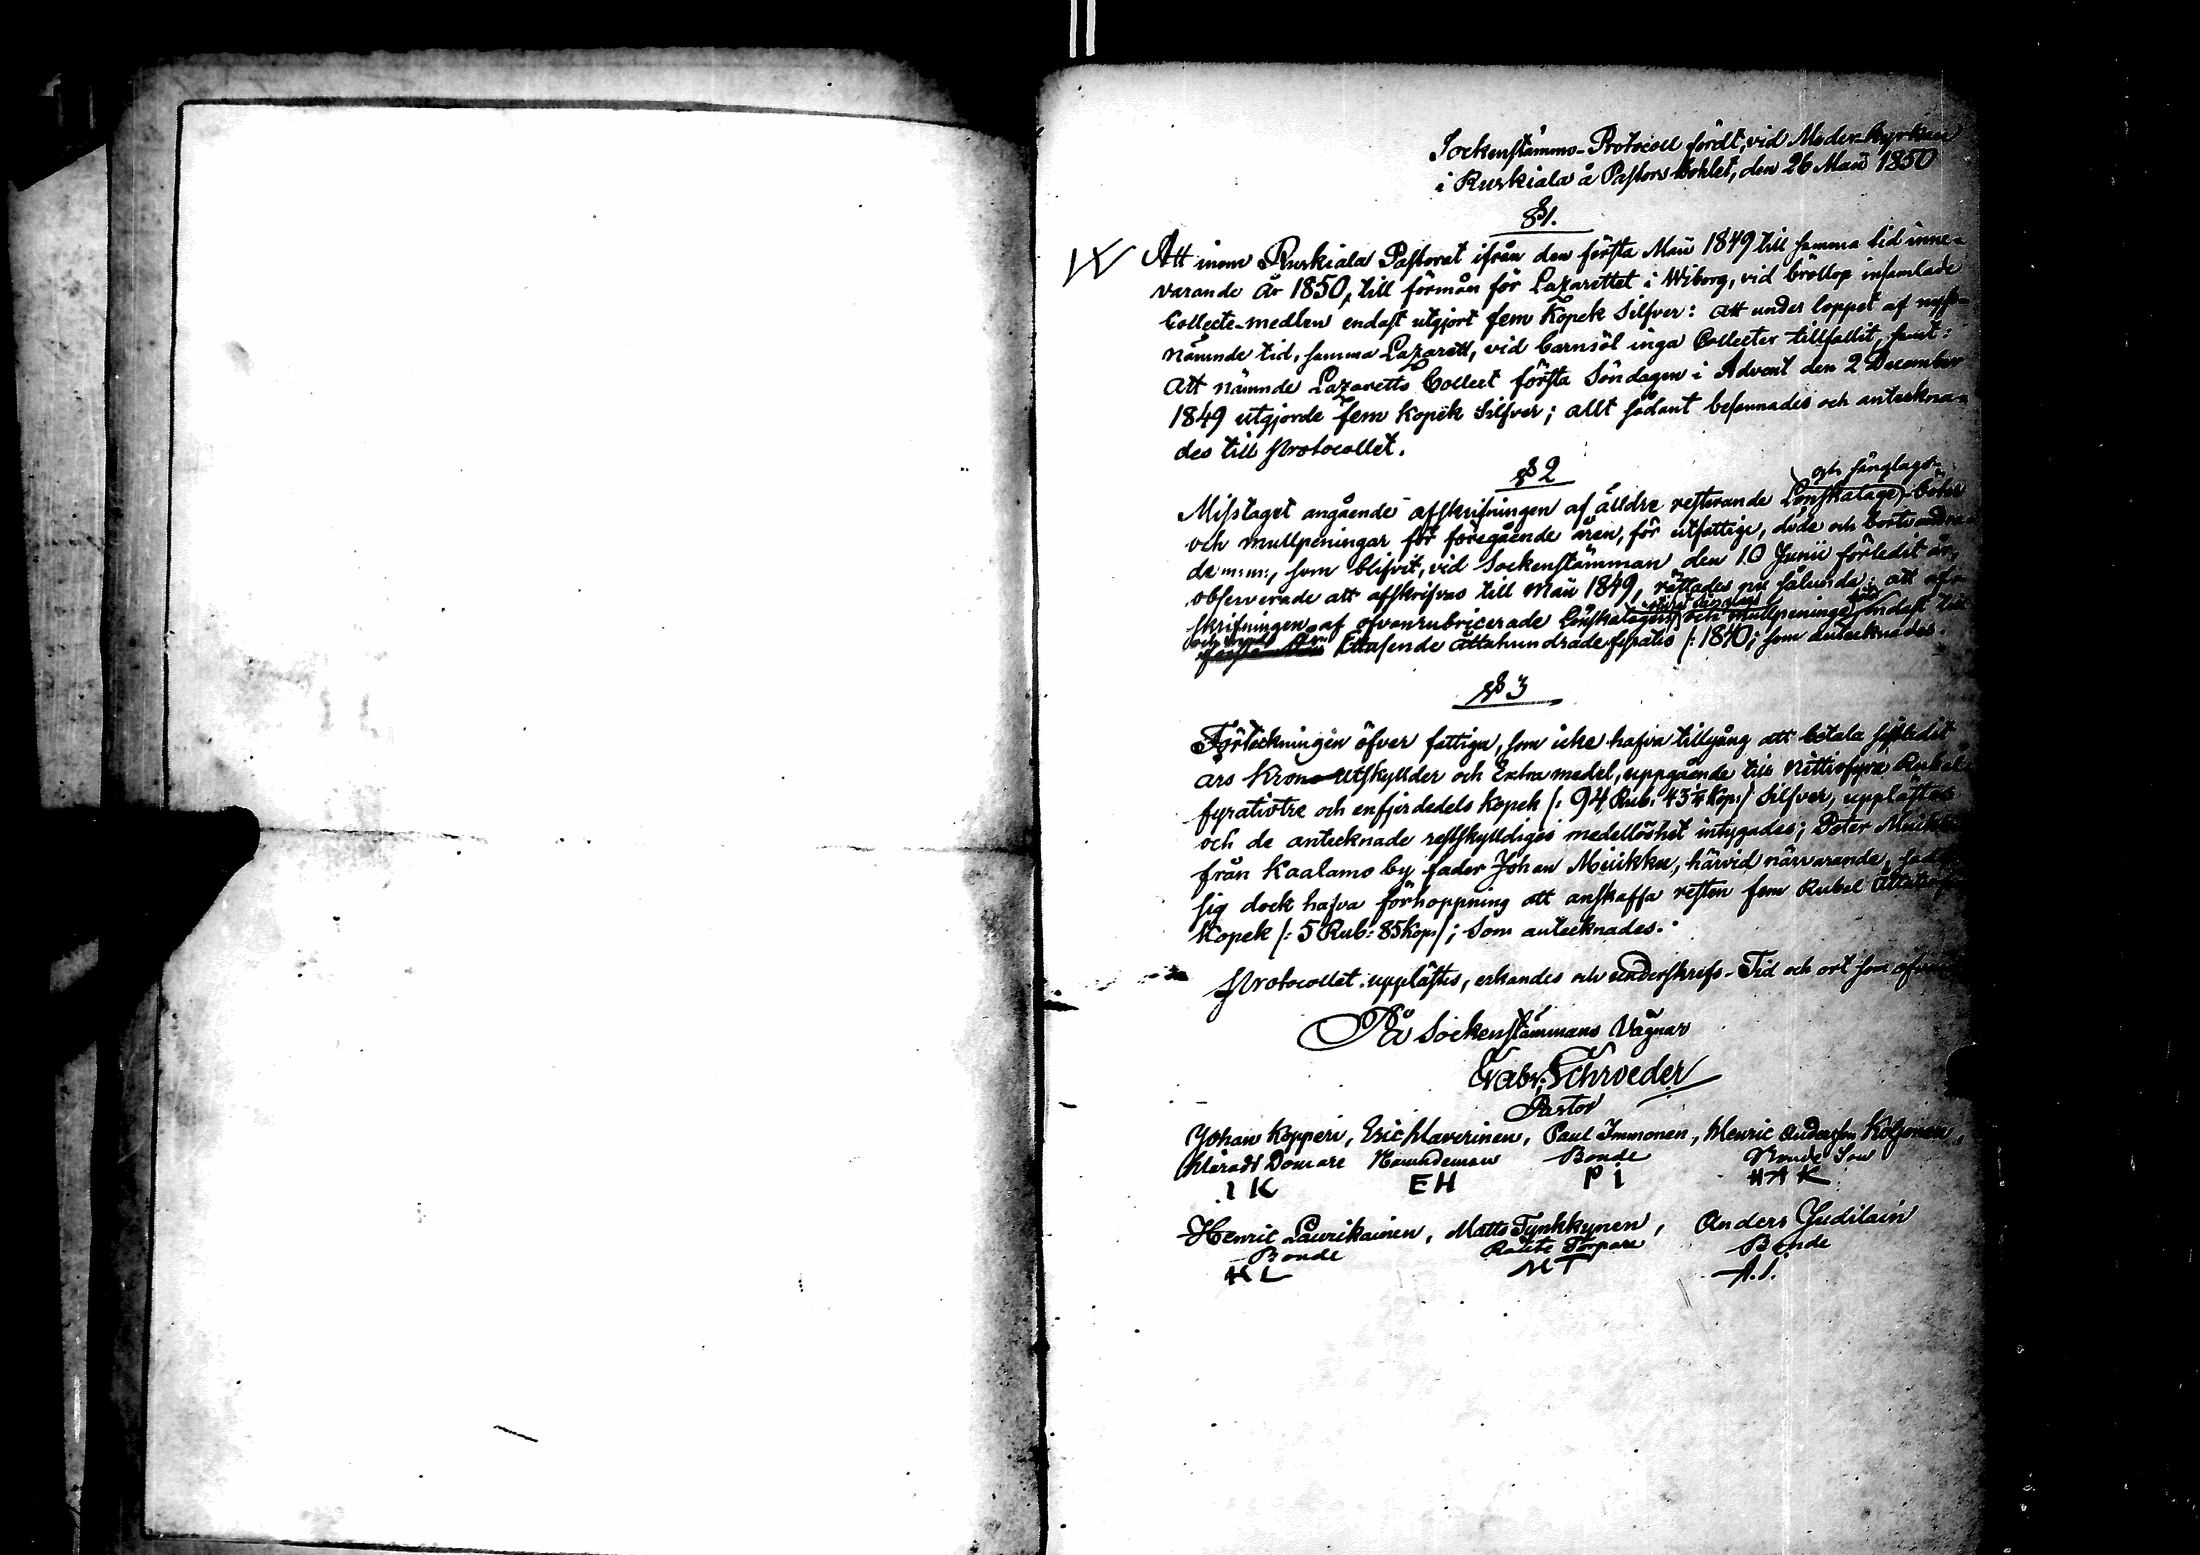 Sockenstämmo-Protocoll fördt, vid Moder-kyrkan
i Ruskiala å Pastors bohlet, den 26 Maii 1850
§ 1.
Att inom Ruskiala Pastorat ifrån den första Maii 1849 till samma tid inne-
varande År 1850, till förmån för Lazarettet i Wiborg, vid bröllop insamlade
Collecte-medlen endast utgjort fem Kopek Silfver: att under loppet af nyss-
nämnde tid, samma Lazarett, vid barnsöl inga Collecter tillfallit, samt:
att nämnde Lazaretts Collect första Söndagen i Advent den 2 December
1849 utgjorde fem kopek Silfver; allt sådant besannades och anteckna-
des till Protocollet.
§ 2
och fånglags-
Misstaget angående afskrifningen af älldre resterande böter
och mullpeningar för föregående åren, för utfattige, döde och bortvandra-
de m:m:, som blifvit, vid Sockenstämman den 10 Junii förledit år,
observerade att afskrifvas till Maii 1849, rättades nu sålunda: att af-
skrifningen af ofvanrubricerade och mullpeninge endast till
och med Ettusende åttahundradefyratio /: 1840; som antecknades.
§ 3
Förteckningen öfver fattiga, som icke hafva tillgång att betala sistledit
års Krono-Utskyllder och Extra medel, uppgående till Nittiofyra Rubel
fyratiotre och enfjerdedels kopek /: 94 Rub: 43 1/4 Kop:/ Silfver, upplästes
och de antecknade restskyldiges medellöshet intygades; Peter Miikku
från Kaalamo by fader Johan Miikku, härvid närvarande, sade
sig dock hafva förhoppning att anskaffa resten fem Rubel
Kopek /: 5 Rub: 85 Kop:/; som antecknades.
Protocollet upplästes, erkändes och underskrefs - Tid och ort som ofvan
På Sockenstämmans Vägnar
Gabr: Schroeder
Pastor
Johan Kopperi, Eric Haverinen, Paul Immonen, Henric Andersson Koljonen,
Härads Domare Nämndeman Bonde Bonde Son
I K E H P I H A K
Henric Laurikainen, Matts Tynkkynen, Anders Judilain
Bonde Torpare Bonde
H L M T A. I.